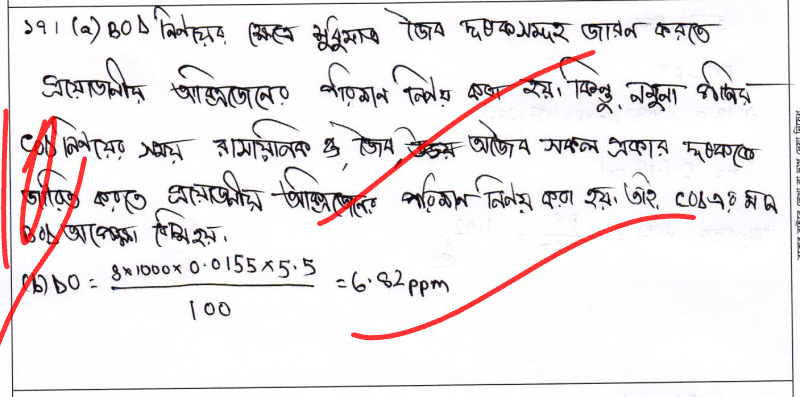 ১৭। (a) BOD নির্ণয়ের ক্ষেত্রে শুধুমাত্র জৈব দূষকসমূহ জারন করতে
প্রয়োজনীয় অক্সিজেনের পরিমান নির্ণয় করা হয়। কিন্তু, নমুনা পানির
COD নির্ণয়ের সময় রাসায়নিক ও জৈব অজৈব সকল প্রকার দূষককে
জারিত করতে প্রয়োজনীয় অক্সিজেনের পরিমান নির্ণয় করা হয়। তাই COD এর মান
BOD অপেক্ষা বেশি হয়।
(b) DO = 8×1000×0.0155×5.5 / 100 = 6.82 ppm